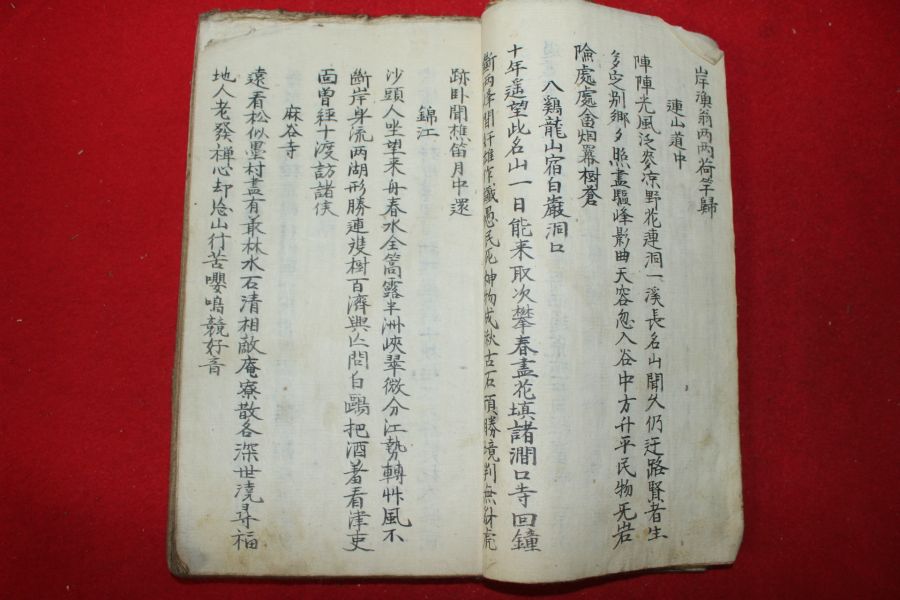 岸漁翁兩兩荷竿歸
連山道中
陣陣光風泛麥凉野花連洞一溪長名山聞久仍迂路賢者生
多定别鄉夕照盡驅峰影曲天容忽入谷中方升平民物无岩
險處處畬烟羃樹蒼
入鷄龍山宿白巖洞口
十年遥望此名山一日能来取次攀春盡花填諸澗口寺回鐘
断两峰間奸雄作讖愚民死神物成湫古石頑勝境判無
跡卧聞樵笛月中還
錦江
沙頭人坐望来舟春水全篙露半洲峽翠微分江勢轉帆風不
断岸身流两湖形勝連雙樹百濟興亡問白鷗把酒蓄看津吏
面曾經十渡訪諸侯
麻谷寺
遠看松似墨村盡有叢林水石清相敵庵寮散各深世澆尋福
地人老發禪心却忩山行苦嚶鳴競好音